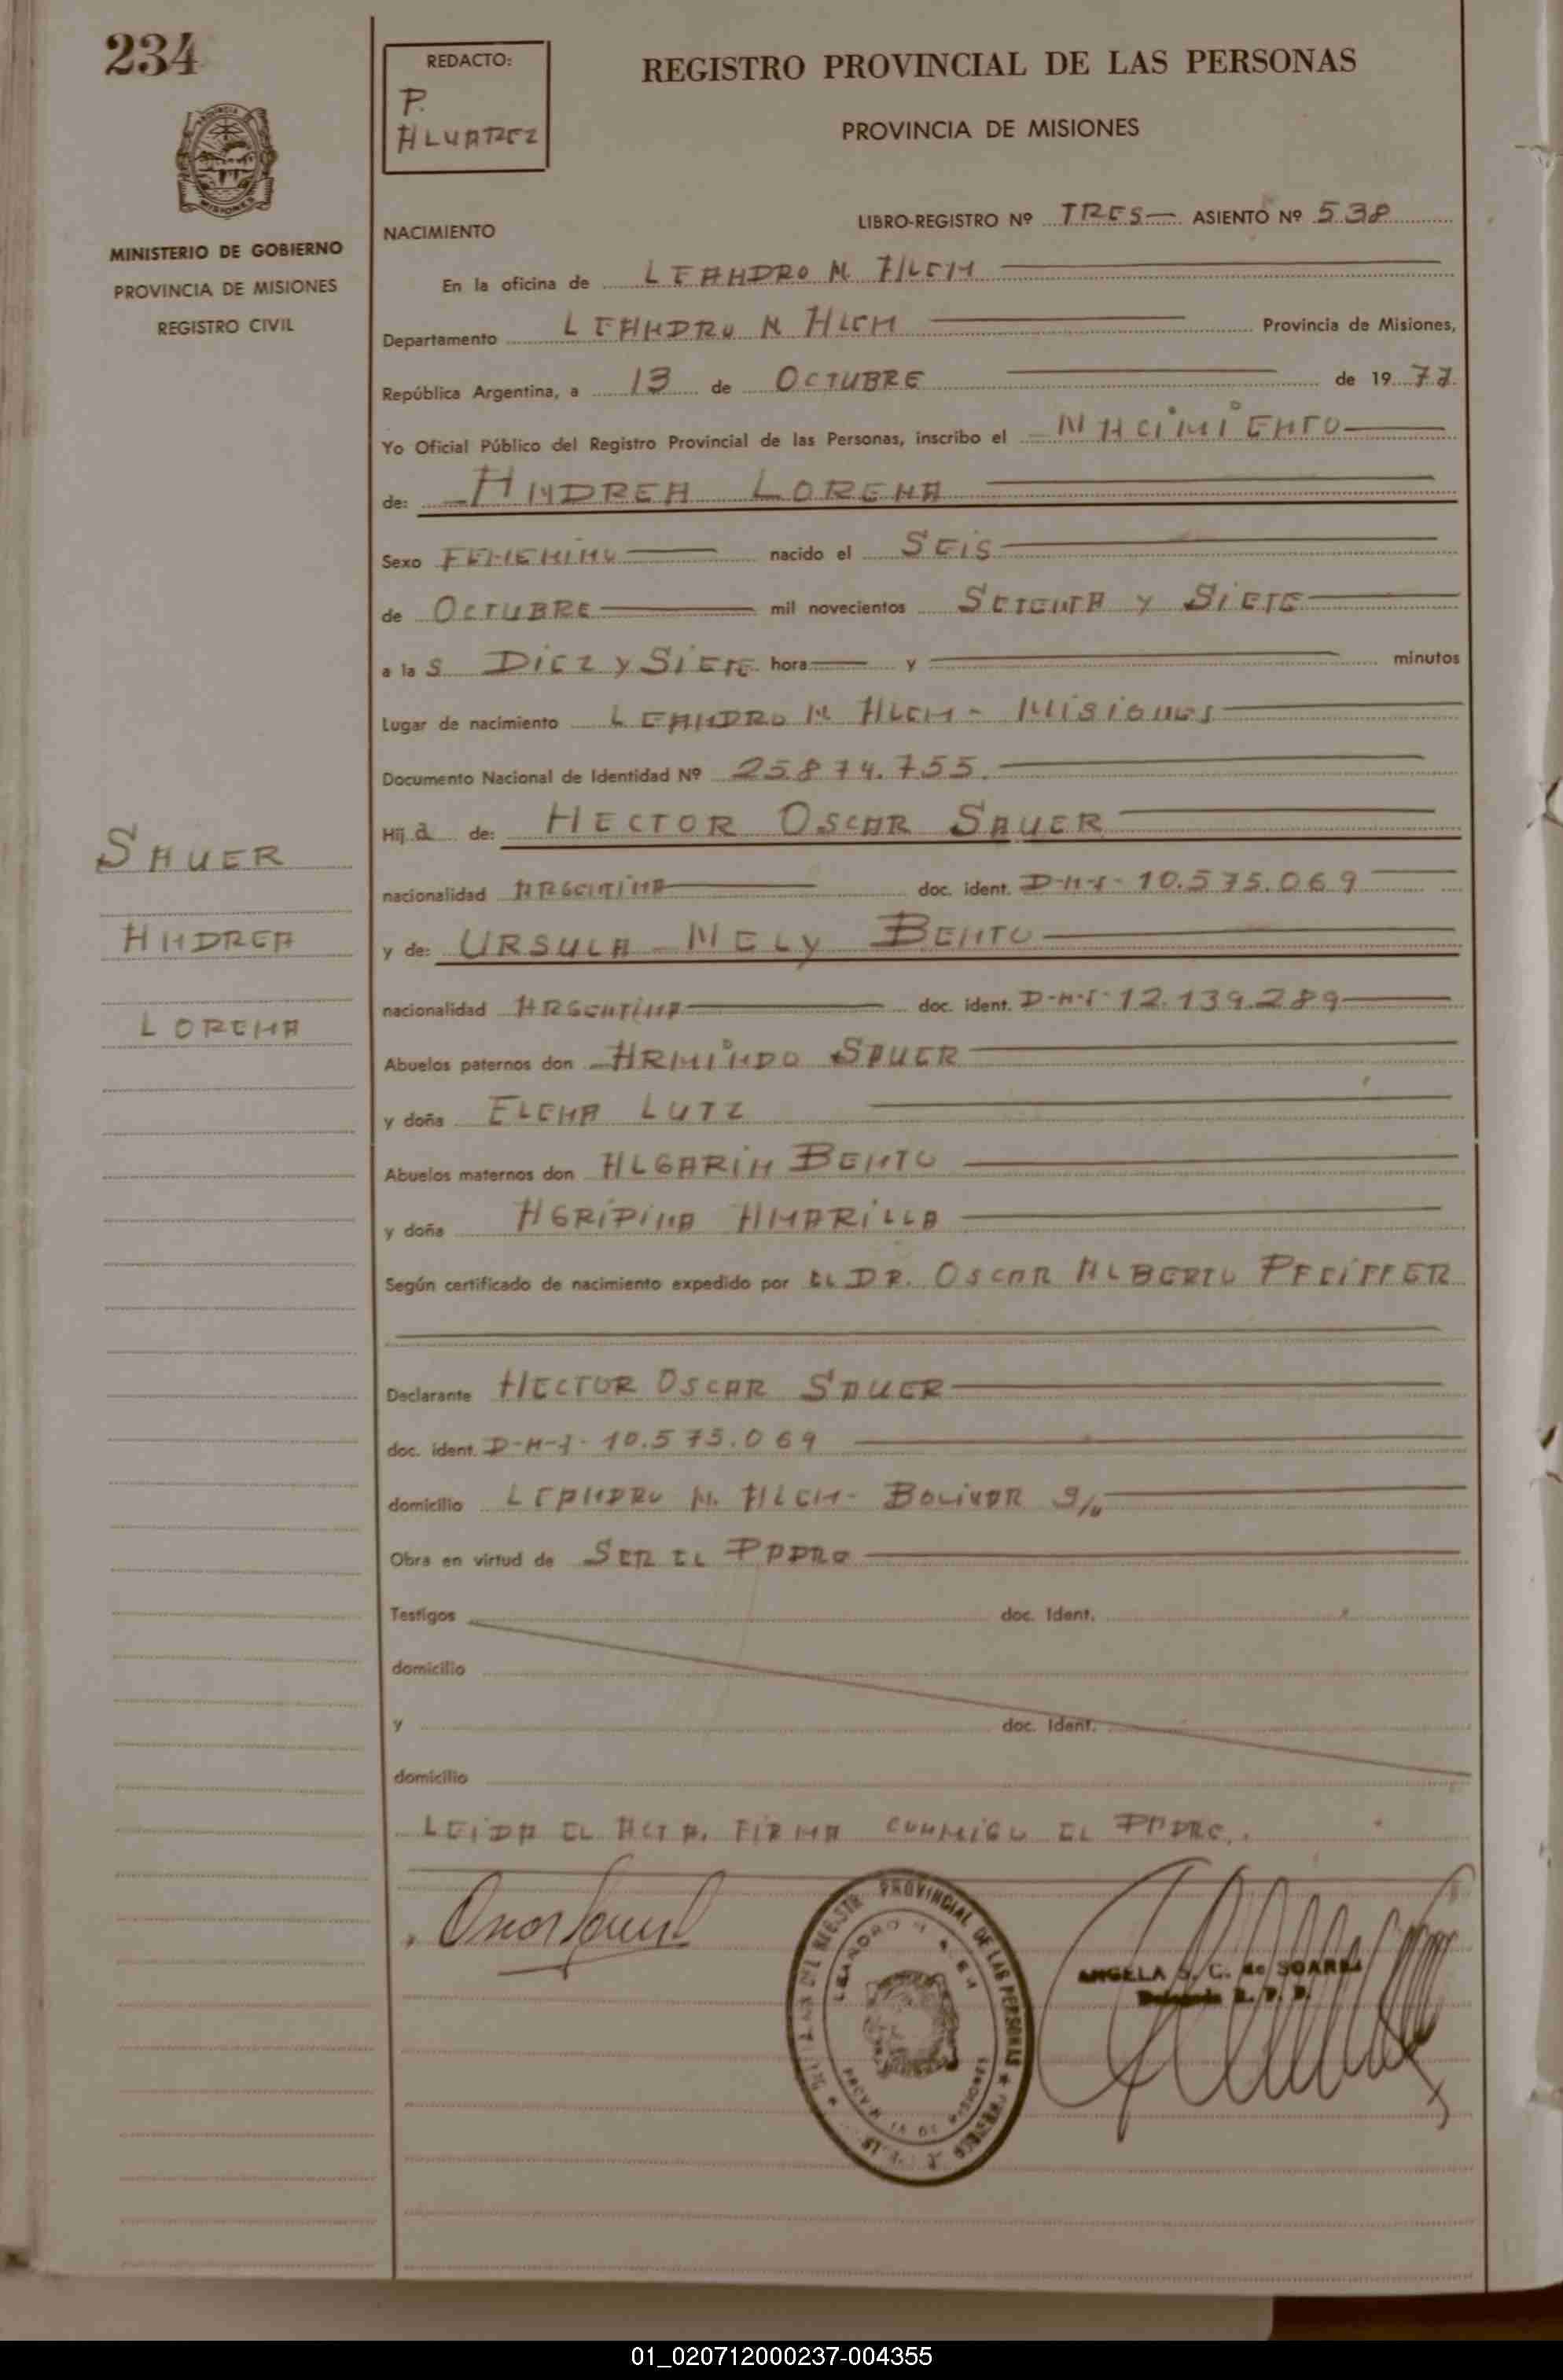 234
REDACTO:
P.
ALVAREZ
REGISTRO PROVINCIAL DE LAS PERSONAS
PROVINCIA DE MISIONES
MINISTERIO DE GOBIERNO
PROVINCIA DE MISIONES
REGISTRO CIVIL
NACIMIENTO
LIBRO-REGISTRO Nº TRES ASIENTO Nº 538
En la oficina de LEANDRO N ALEM
Departamento LEANDRO N ALEM Provincia de Misiones,
República Argentina, a 13 de OCTUBRE de 1977
Yo Oficial Público del Registro Provincial de las Personas, inscribo el NACIMIENTO
de: ANDREA LORENA
Sexo FEMENINO nacido el SEIS
de OCTUBRE mil novecientos SETENTA Y SIETE
a la S DIEZ Y SIETE hora y minutos
Lugar de nacimiento LEANDRO N ALEM - MISIONES
Documento Nacional de Identidad Nº 25.874.755.
Hij a de: HECTOR OSCAR SAUER
nacionalidad ARGENTINA doc. ident. D-N-I- 10.575.069
y de: URSULA NELY BENTO
nacionalidad ARGENTINA doc. ident. D-N-I- 12.139.289
Abuelos paternos don ARMINDO SAUER
y doña ELENA LUTZ
Abuelos maternos don ALGARIN BENTO
y doña AGRIPINA AMARILLA
Según certificado de nacimiento expedido por EL DR. OSCAR ALBERTO PFEIFFER
Declarante HECTOR OSCAR SAUER
doc. ident. D-N-I- 10.575.069
domicilio LEANDRO N. ALEM- BOLIVAR S/N
Obra en virtud de SER EL PADRE
Testigos doc. Ident.
domicilio
y doc. Ident.
domicilio
LEIDA EL ACTA. FIRMA CONMIGO EL PADRE.
SAUER
ANDREA
LORENA
PROVINCIAL DE LAS PERSONAS
LEANDRO N ALEM
ANGELA S. C. de SOARES
01_020712000237-004355